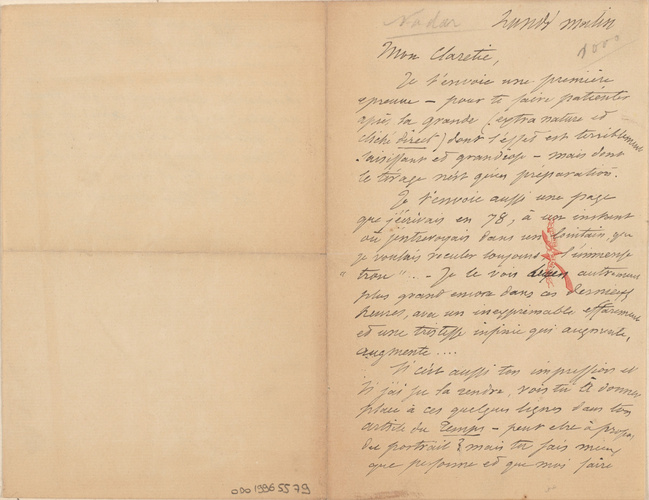 Nadar
Lundi matin
Mon Claretie,
Je t'envoie une première
épreuve – pour te faire patienter
après la grande (extra nature et
cliché direct) dont l'effet est terriblement
saisissant et grandiose – mais dont
le tirage n'est qu'en préparation.
Je t'envoie aussi une page
que j'écrivais en 78, à un instant
où j'entrevoyais dans un lointain, que
je voulais reculer toujours l'immense
"trou"... – Je le vois autrement
plus grand encore dans ces dernières
heures, avec un inexprimable effarement
et une tristesse infinie qui augmente,
augmente....
Si c'est aussi ton impression et
si j'ai su la rendre, vois tu à donner
place à ces quelques lignes dans ton
article du Temps – peut être à propos
du portrait? mais tu sais mieux
que personne et que moi faire
ODO 1996 55 79